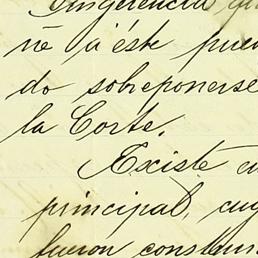 Ingerencia que
ne á éste pue
do sobreponerse
la Corte.
Existe
principal, cuy
fueron constru